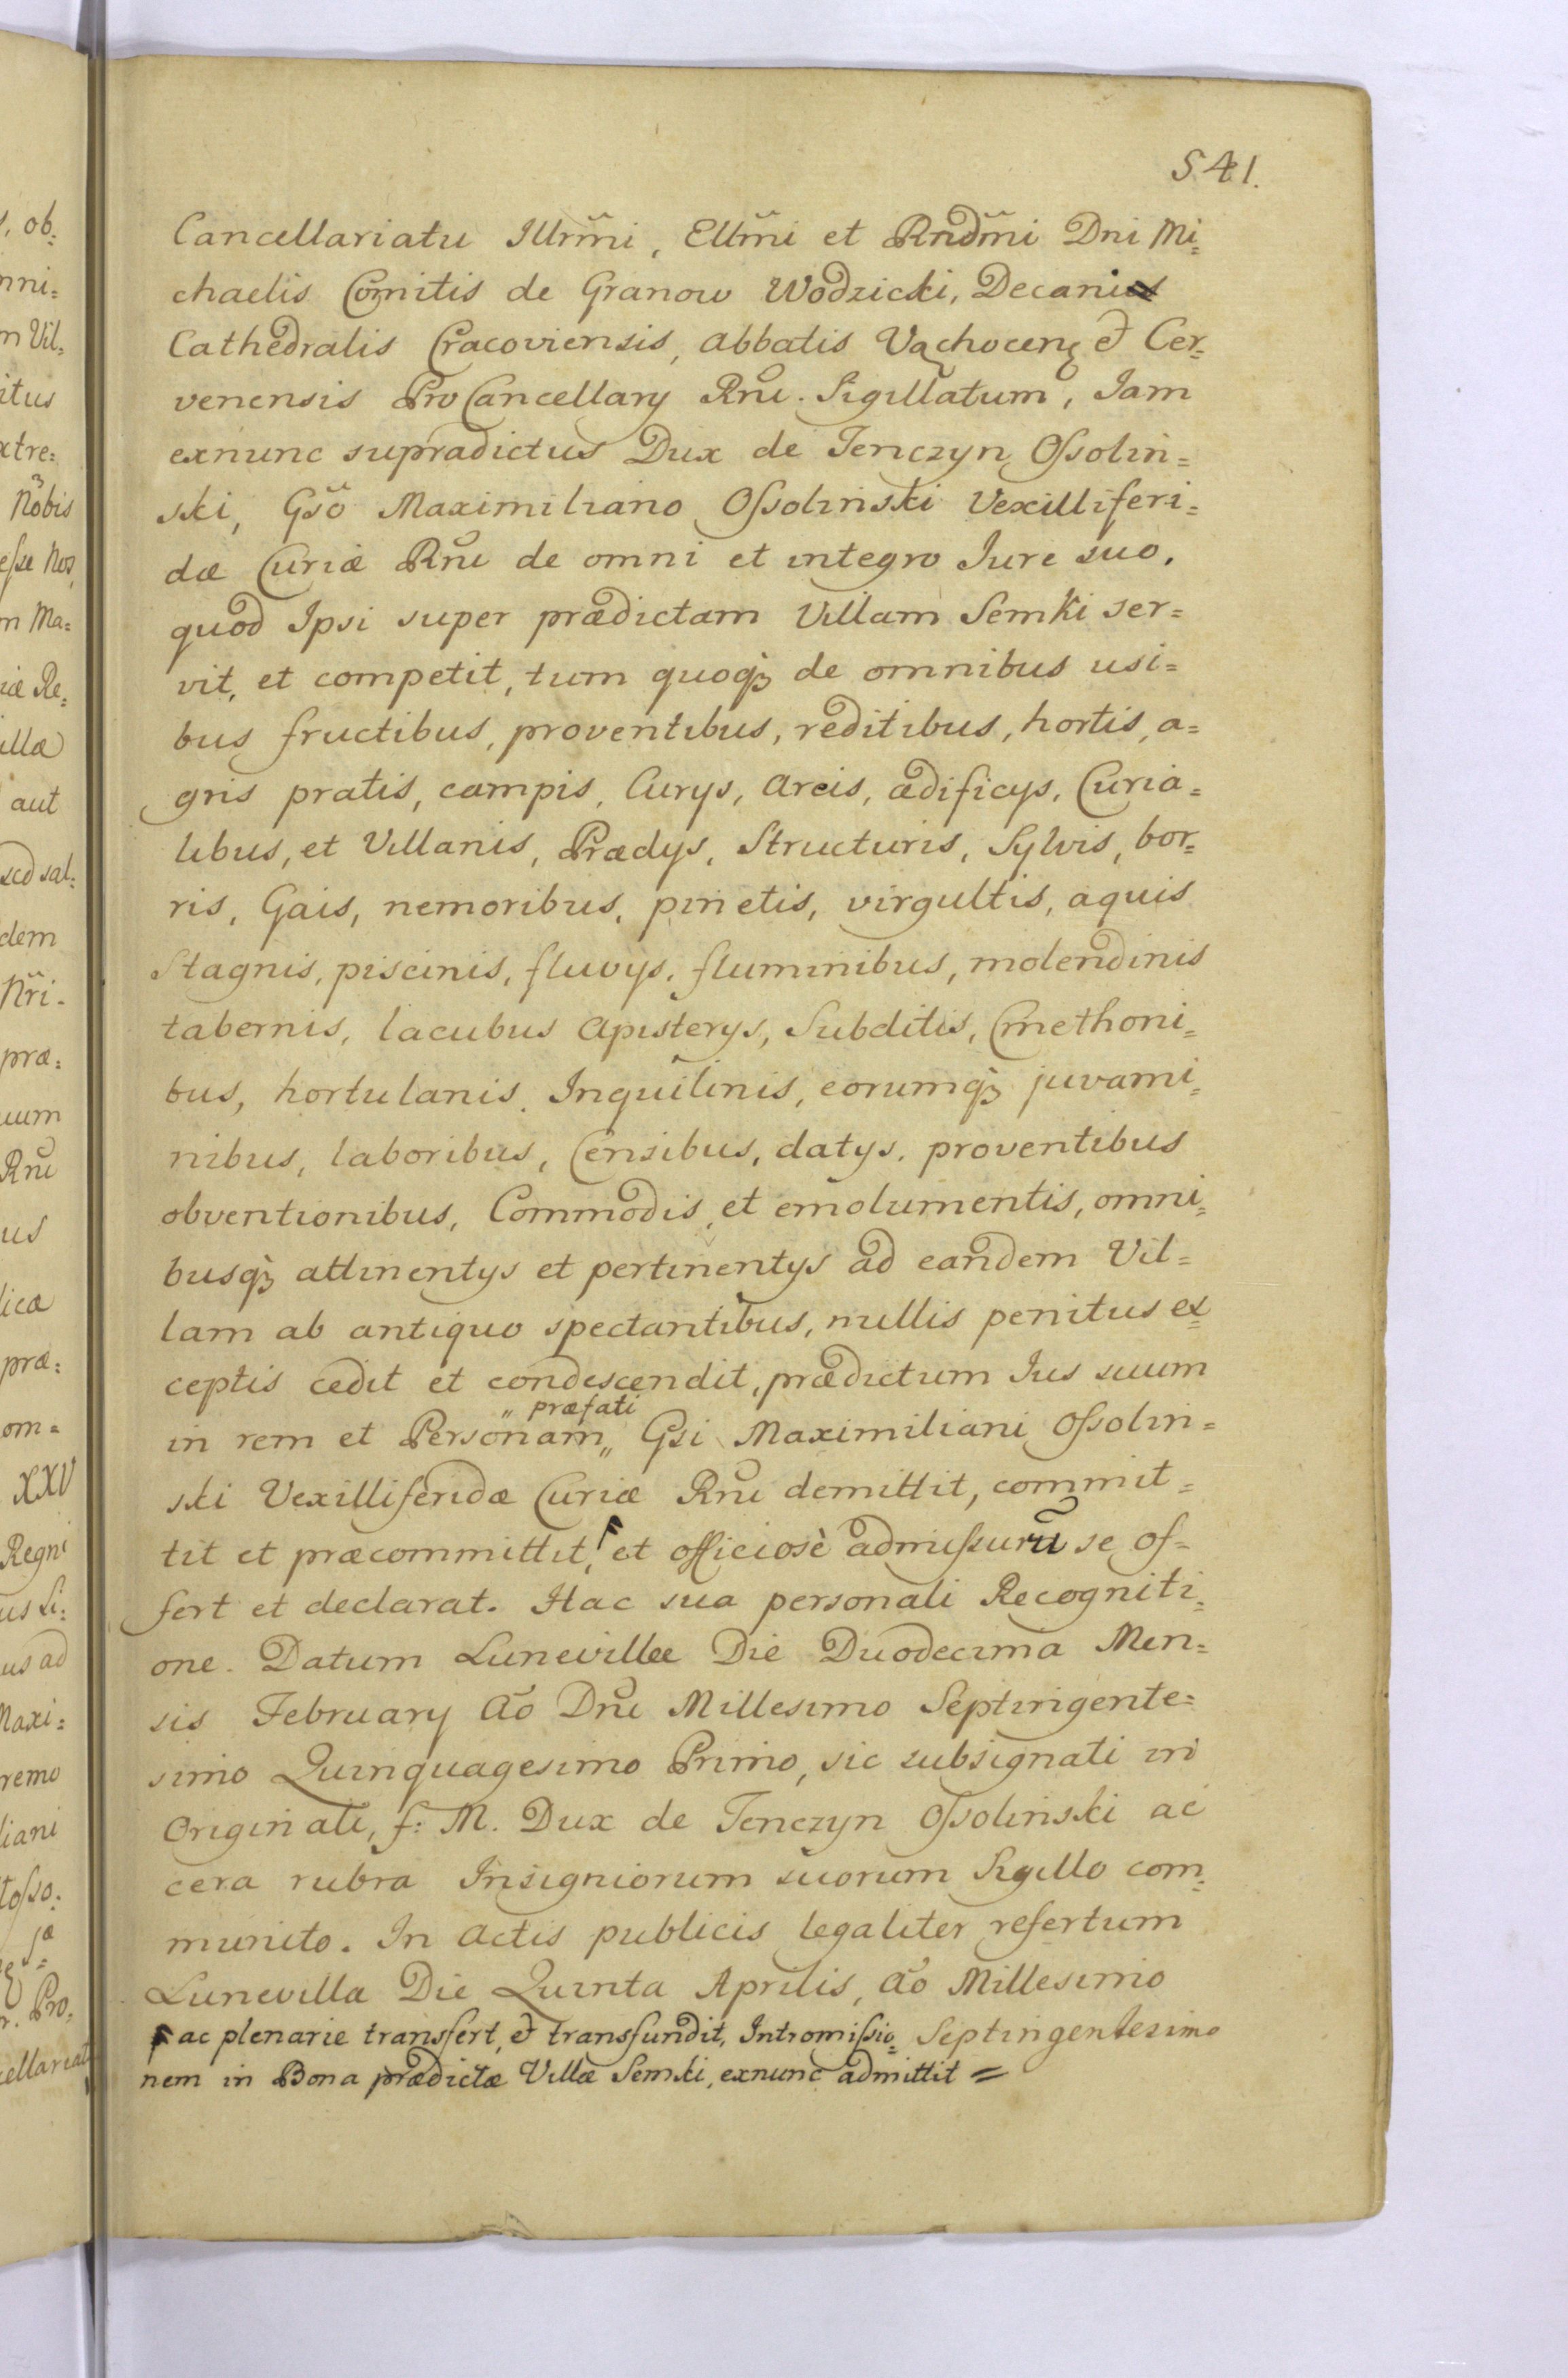 541.
Cancellariatu Illrm̃i, Ellm̃i et Rndm̃i Dni Mi=
chaelis Comitis de Granow Wodzicki, Decani
Cathedralis Cracoviensis, Abbatis Vąchocenę et Cer=
venensis ProCancellary Rñi. Sigillatum, Iam
exnunc supradictus Dux de Tenczyn Oſsolin=
ski, Gsõ Maximiliano Oſsolinski Vexilliferi=
dæ Curiæ Rñi de omni et integro Iure suo,
quod Ipsi super prædictam Villam Semki ser=
vit, et competit, tum quoqꝫ de omnibus usi=
bus fructibus, proventibus, reditibus, hortis, a=
gris pratis, campis, Curys, Areis, ædificys, Curia=
libus, et Villanis, Prædys, Structuris, Sylvis, bor=
ris, Gais, nemoribus, pinetis, virgultis, aquis
Stagnis, piscinis, fluvys, fluminibus, molendinis
tabernis, lacubus Apisterys, Subditis, Cmethoni=
bus, hortulanis, Inquilinis, eorumqꝫ juvami=
nibus, laboribus, Censibus, datys, proventibus
obventionibus, Commodis, et emolumentis, omni=
busqꝫ attinentys et pertinentys ad eandem Vil=
lam ab antiquo spectantibus, nullis penitus ex=
ceptis cedit et condescendit, prædictum Ius suum
„ præfati
in rem et Personam„ Gsi Maximiliani Oſsolin=
ski Vexilliferidæ Curiæ Rñi demittit, commit=
tit et præcommittit, et officiosè admiſsurũ se of=
fert et declarat. Hac sua personali Recogniti=
one. Datum Lunevillæ Die Duodecima Men=
sis February Aõ Dñi Millesimo Septingente=
simo Quinquagesimo Primo, sic subsignati in
Originali, f: M. Dux de Tenczyn Oſsolinski ac
cera rubra Insigniorum suorum Sigillo com=
munito. In Actis publicis legaliter refertum
Lunevilla Die Quinta Aprilis, Aõ Millesimo
ac plenarie transfert, et transfundit, Intromiſsio= Septingentesimo
nem in Bona prædictæ Villæ Semki, exnunc admittit =
, ob=
nni=
m Vil=
itus
xtre=
Nõbis
eſse Nos
m Ma=
iæ Re=
illæ
aut
sed sal=
dem
Nr̃i.
præ=
uum
Rñi
us
lica
præ=
om=
XXV
Regni
us Li=
us ad
Maxi=
remo
liani
toſso=
Pro=
cellariat